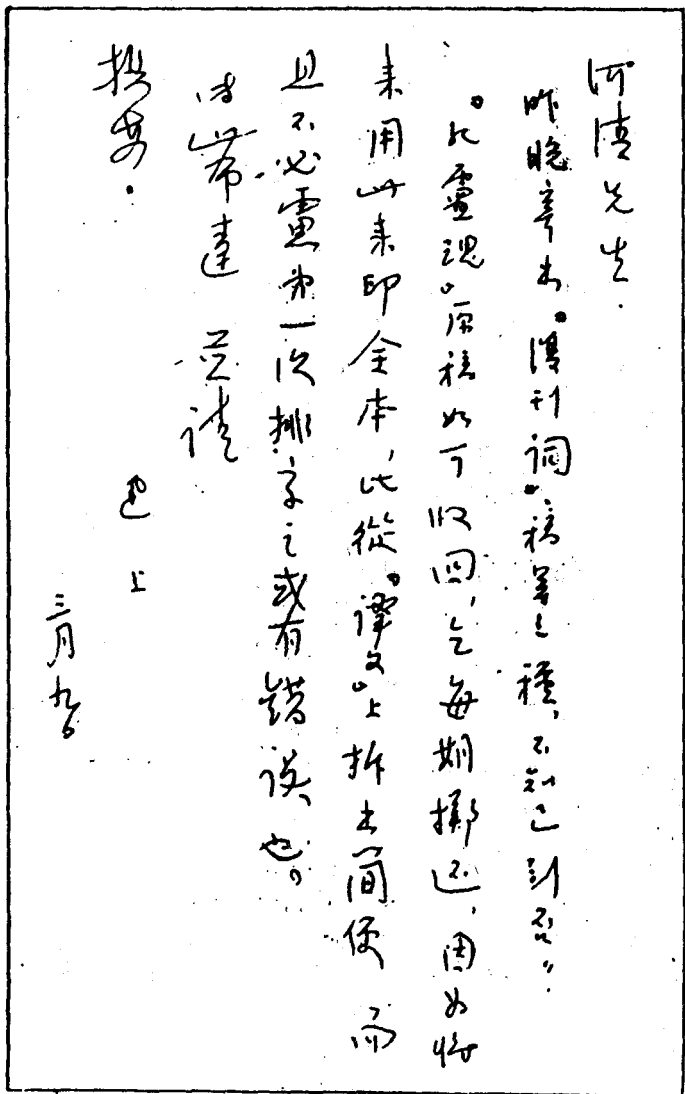 河清先生：
昨晚寄出“復刊詞”稿等三種，不知已到否？
“死靈魂”原稿如可收回，乞每期擲还，因如將
来用此来印全本，比從“譯文”上拆出簡便，而
且不必慮第一次排字之或有錯误也。
专此布達 並请
撰安。
迅 上
三月九日